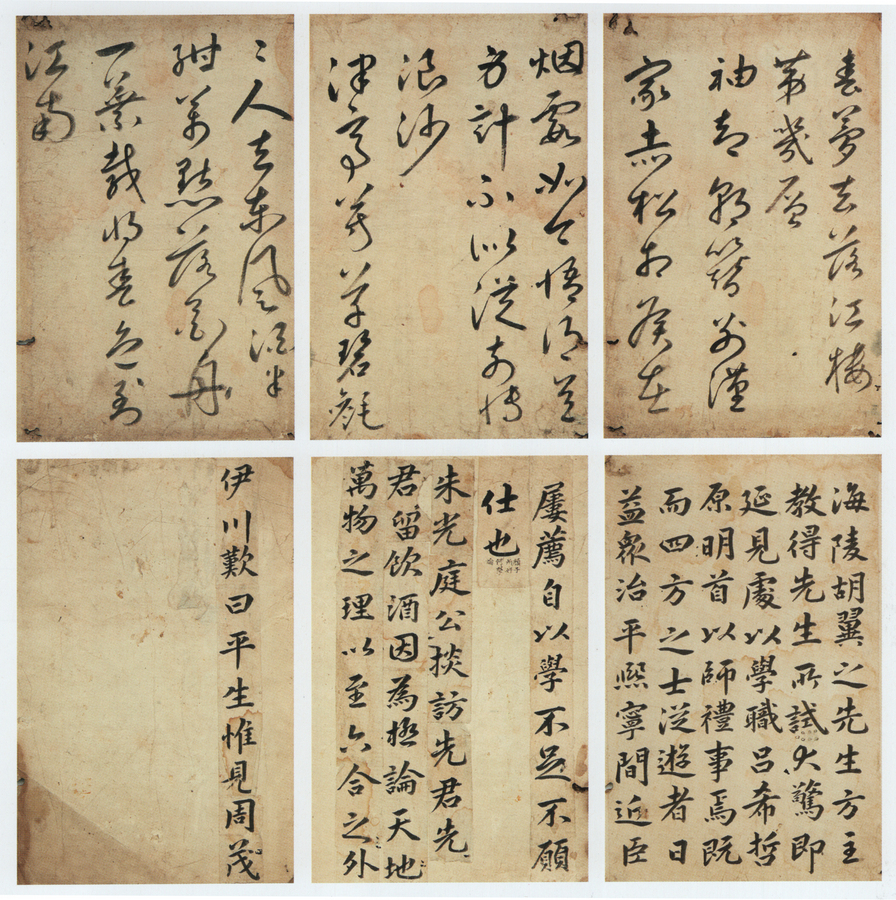 春夢去落江樓
第幾層
袖却朝簪別漢
家赤松相候在
烟霞如今悟得
方計不似從前博
浪沙
津亭芳草碧毿
〻人去東風酒半
酣萬點落花舟
一葉載將春色到
江南
海陵胡翼之先生方主
教得先生所試大驚即
延見處以學職呂希哲
原明首以師禮事焉既
而四方之士從遊者日
益衆治平熙寧間近臣
屢薦自以學不足不願
仕也
朱光庭公掞訪先君先
君留飲酒因為極論天地
萬物之理以至六合之外
伊川歎曰平生惟見周茂